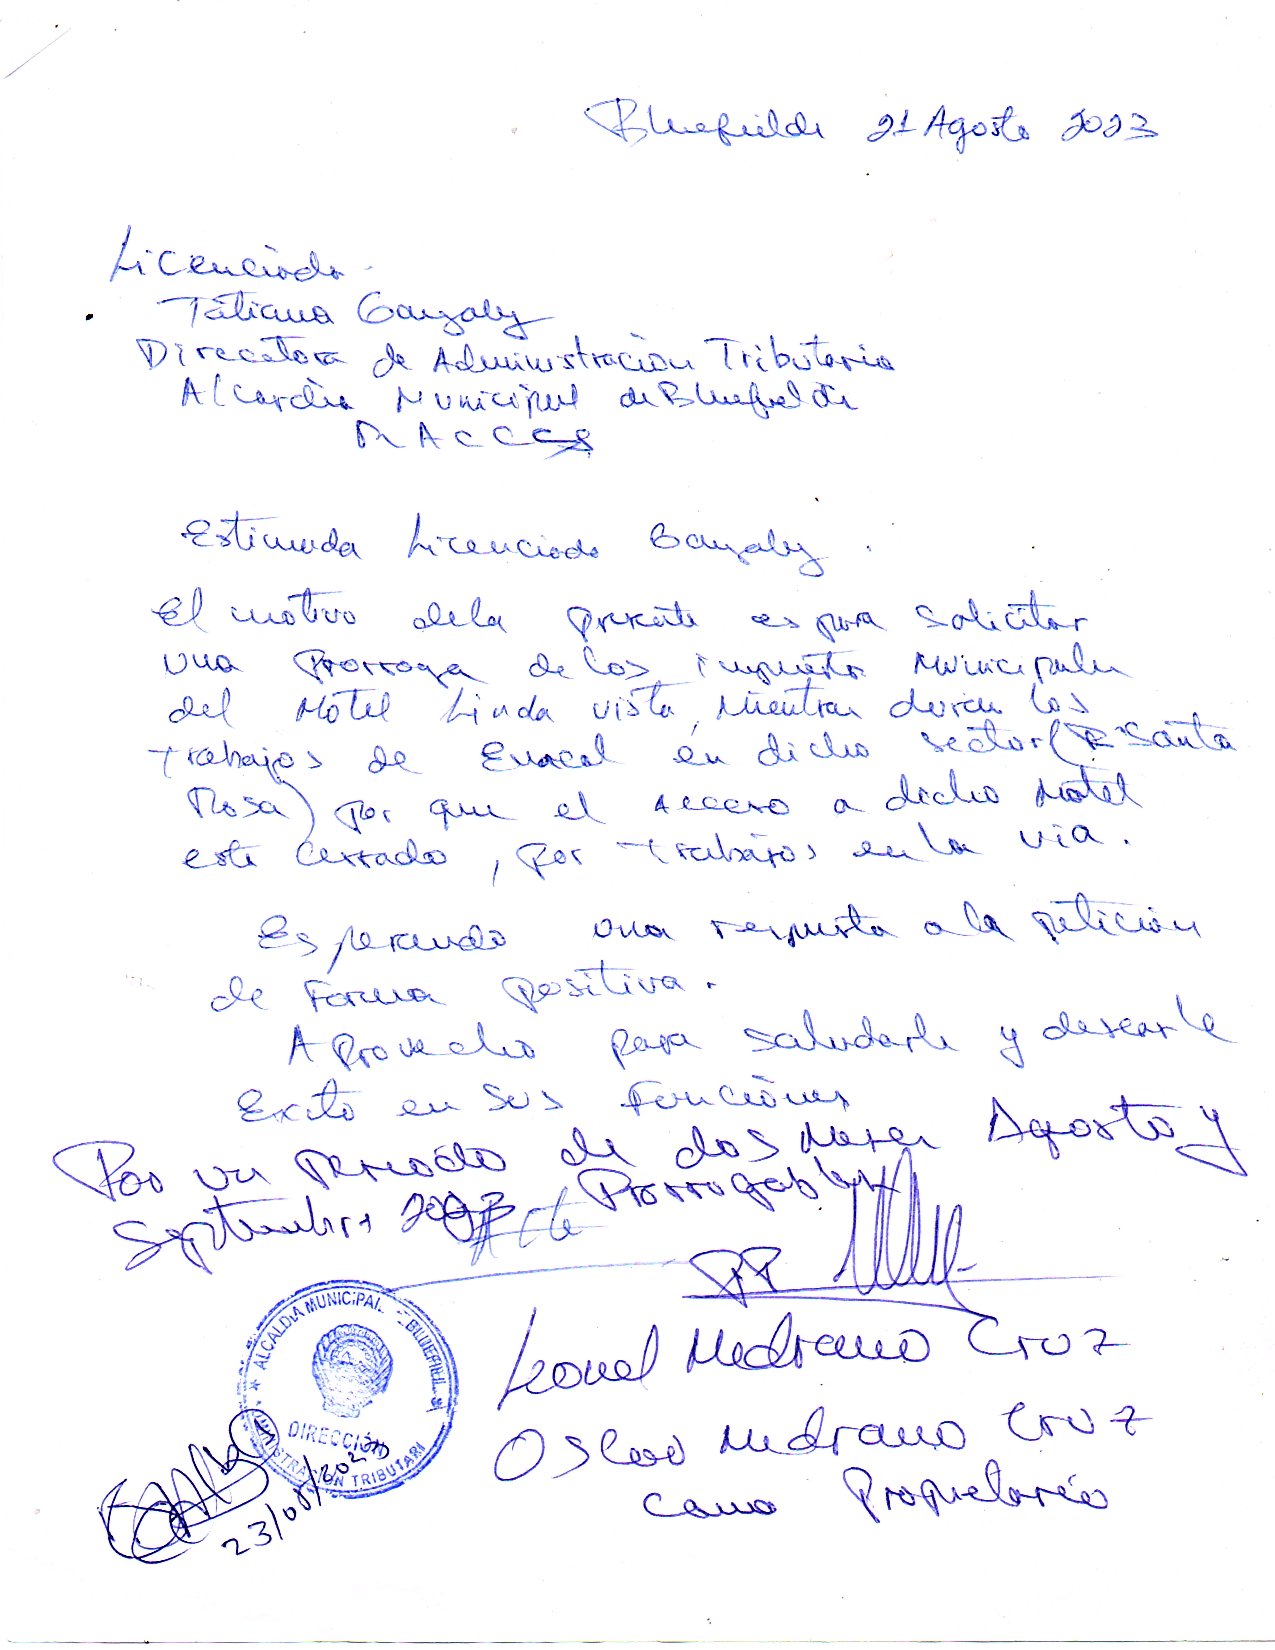 Bluefields 21 Agosto 2023
Licenciada
Tatiana Gonzalez
Direcctora de Administración Tributaria
Alcardia Municipal de Bluefields
RACCS
Estimada Licenciada Gonzalez.
El motivo dela presente es para solicitar
una Prorroga de los impuestos Municipales
del Motel Linda vista, mientras duren los
trabajos de Enacal en dicho sector (Santa
Rosa) por que el Acceso a dicho Motel
este cerrado, por trabajos en la via.
Esperando una respuesta a la petición
de Forma positiva.
Aprovecho para saludarle y desearle
Exito en sus Funciones
Por un periodo de dos Meses Agosto y
Septiembre 2023 Prorrogables
PP
Leonel Medrano Cruz
Oscar Medrano Cruz
como Propietario
ALCALDIA MUNICIPAL DE BLUEFIELDS
DIRECCIÓN
ADMINISTRACION TRIBUTARIA
23/08/2023